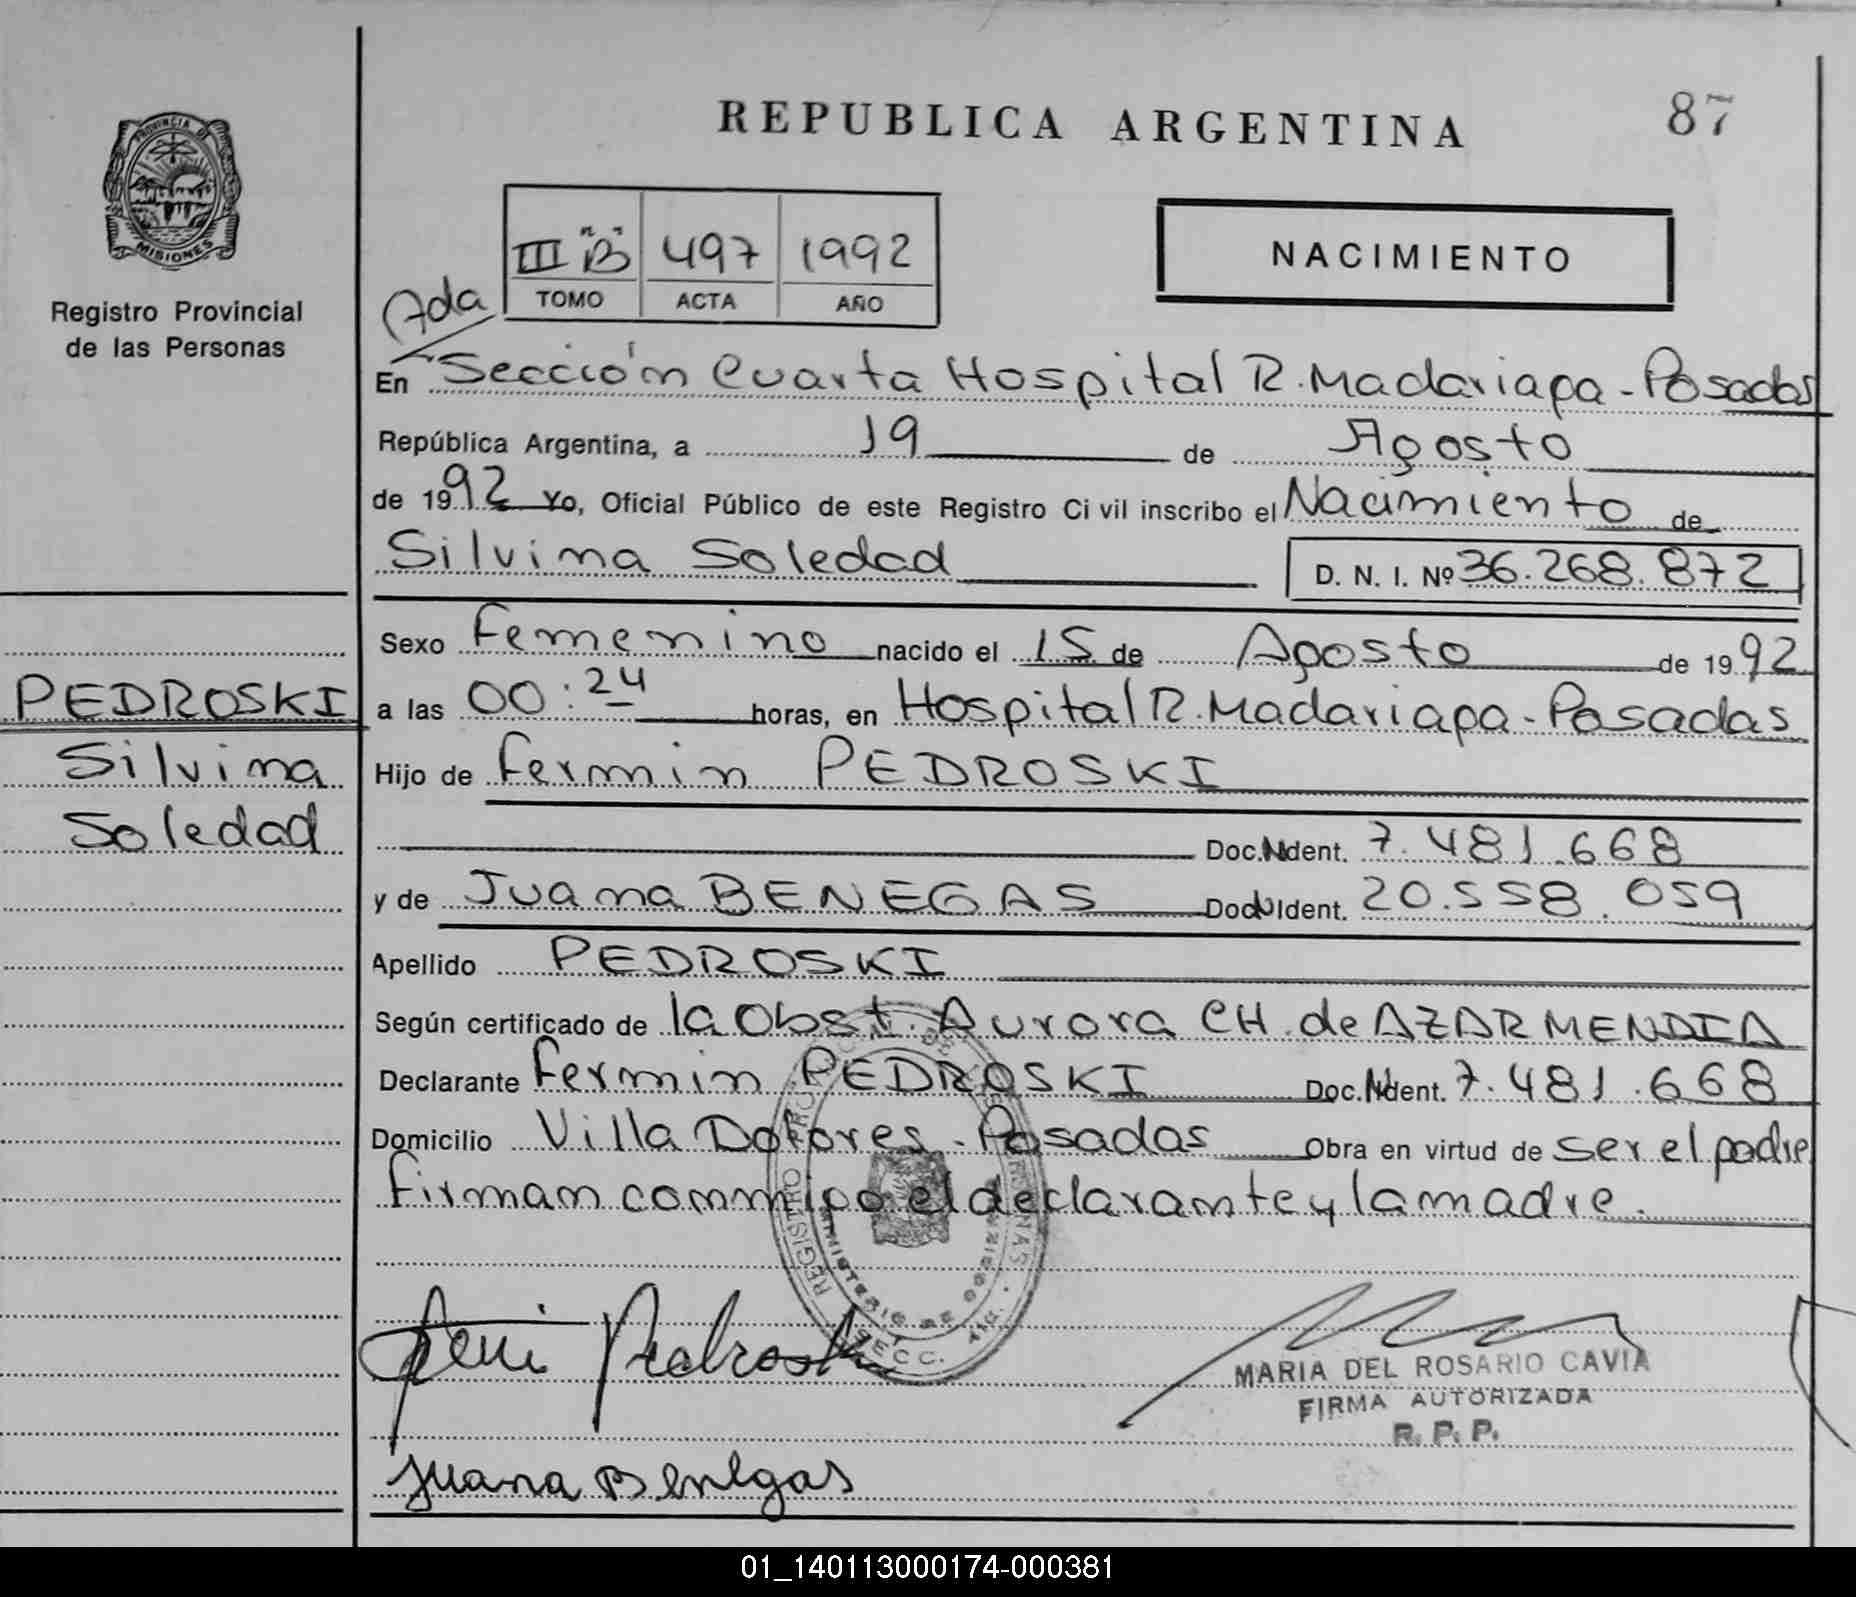 REPUBLICA ARGENTINA
87
PROVINCIA DE
MISIONES
Registro Provincial
de las Personas
III "B" 497 1992
TOMO ACTA AÑO
NACIMIENTO
Ada
En Sección Cuarta Hospital R. Madariaga - Posadas
República Argentina, a 19 de Agosto
de 1992 Yo, Oficial Público de este Registro Civil inscribo el Nacimiento de
Silvina Soledad D. N. I. Nº 36.268.872
Sexo Femenino nacido el 15 de Agosto de 1992
PEDROSKI
Silvina
Soledad
a las 00:24 horas, en Hospital R. Madariaga - Posadas
Hijo de Fermin PEDROSKI
Doc. Ident. 7.481.668
y de Juana BENEGAS Doc. Ident. 20.558.059
Apellido PEDROSKI
Según certificado de la Obst. Aurora CH. de AZARMENDIA
Declarante Fermin PEDROSKI Doc. Ident. 7.481.668
Domicilio Villa Dolores - Posadas Obra en virtud de ser el padre
Firman conmigo el declarante y la madre.
Pedroski
MARIA DEL ROSARIO CAVIA
FIRMA AUTORIZADA
R. P. P.
Juana Benegas
01_140113000174-000381